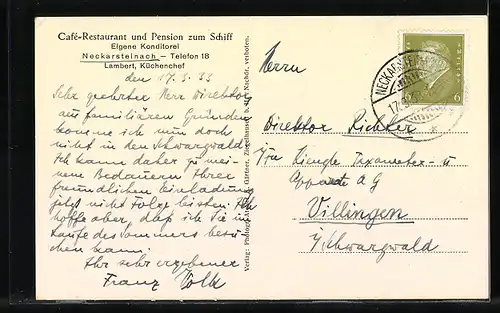 Café-Restaurant und Pension zum Schiff
Eigene Konditorei
Neckarsteinach — Telefon 18
Lambert, Küchenchef
den 17.3.33
Sehr geehrter Herr Direktor
aus familiären Gründen
komme ich nun doch
nicht in den Schwarzwald
Ich kann daher zu mei-
nem Bedauern Ihrer
freundlichen Einladung
jetzt nicht Folge leisten. Ich
hoffe aber, daß ich Sie im
Laufe des Sommers besu-
chen kann.
Ihr sehr ergebener
Franz Volk
Verlag: Photogr. Gärtner, Ziegelhausen Nachdr. verboten.
NECKARSTEINACH
17.3
6
Herrn
Direktor Richter
i/Fa Kienzle Taxameter- u
Apparate AG
Villingen
i/Schwarzwald